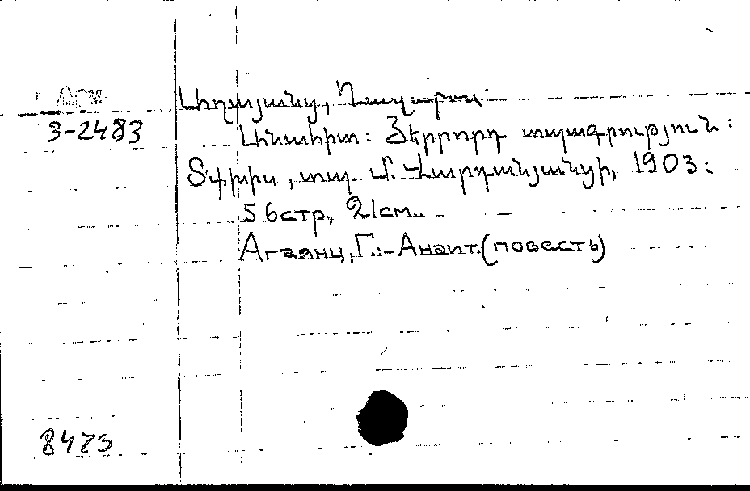 Арм
3-2483
Աղայանց, Ղազարոս
Անահիտ: Երրորդ տպագրություն:
Տփխիս, տպ. Մ. Վարդանյանցի, 1903:
56стр, 21см.
Агаянц, Г.:-Анаит.(повесть)
8473